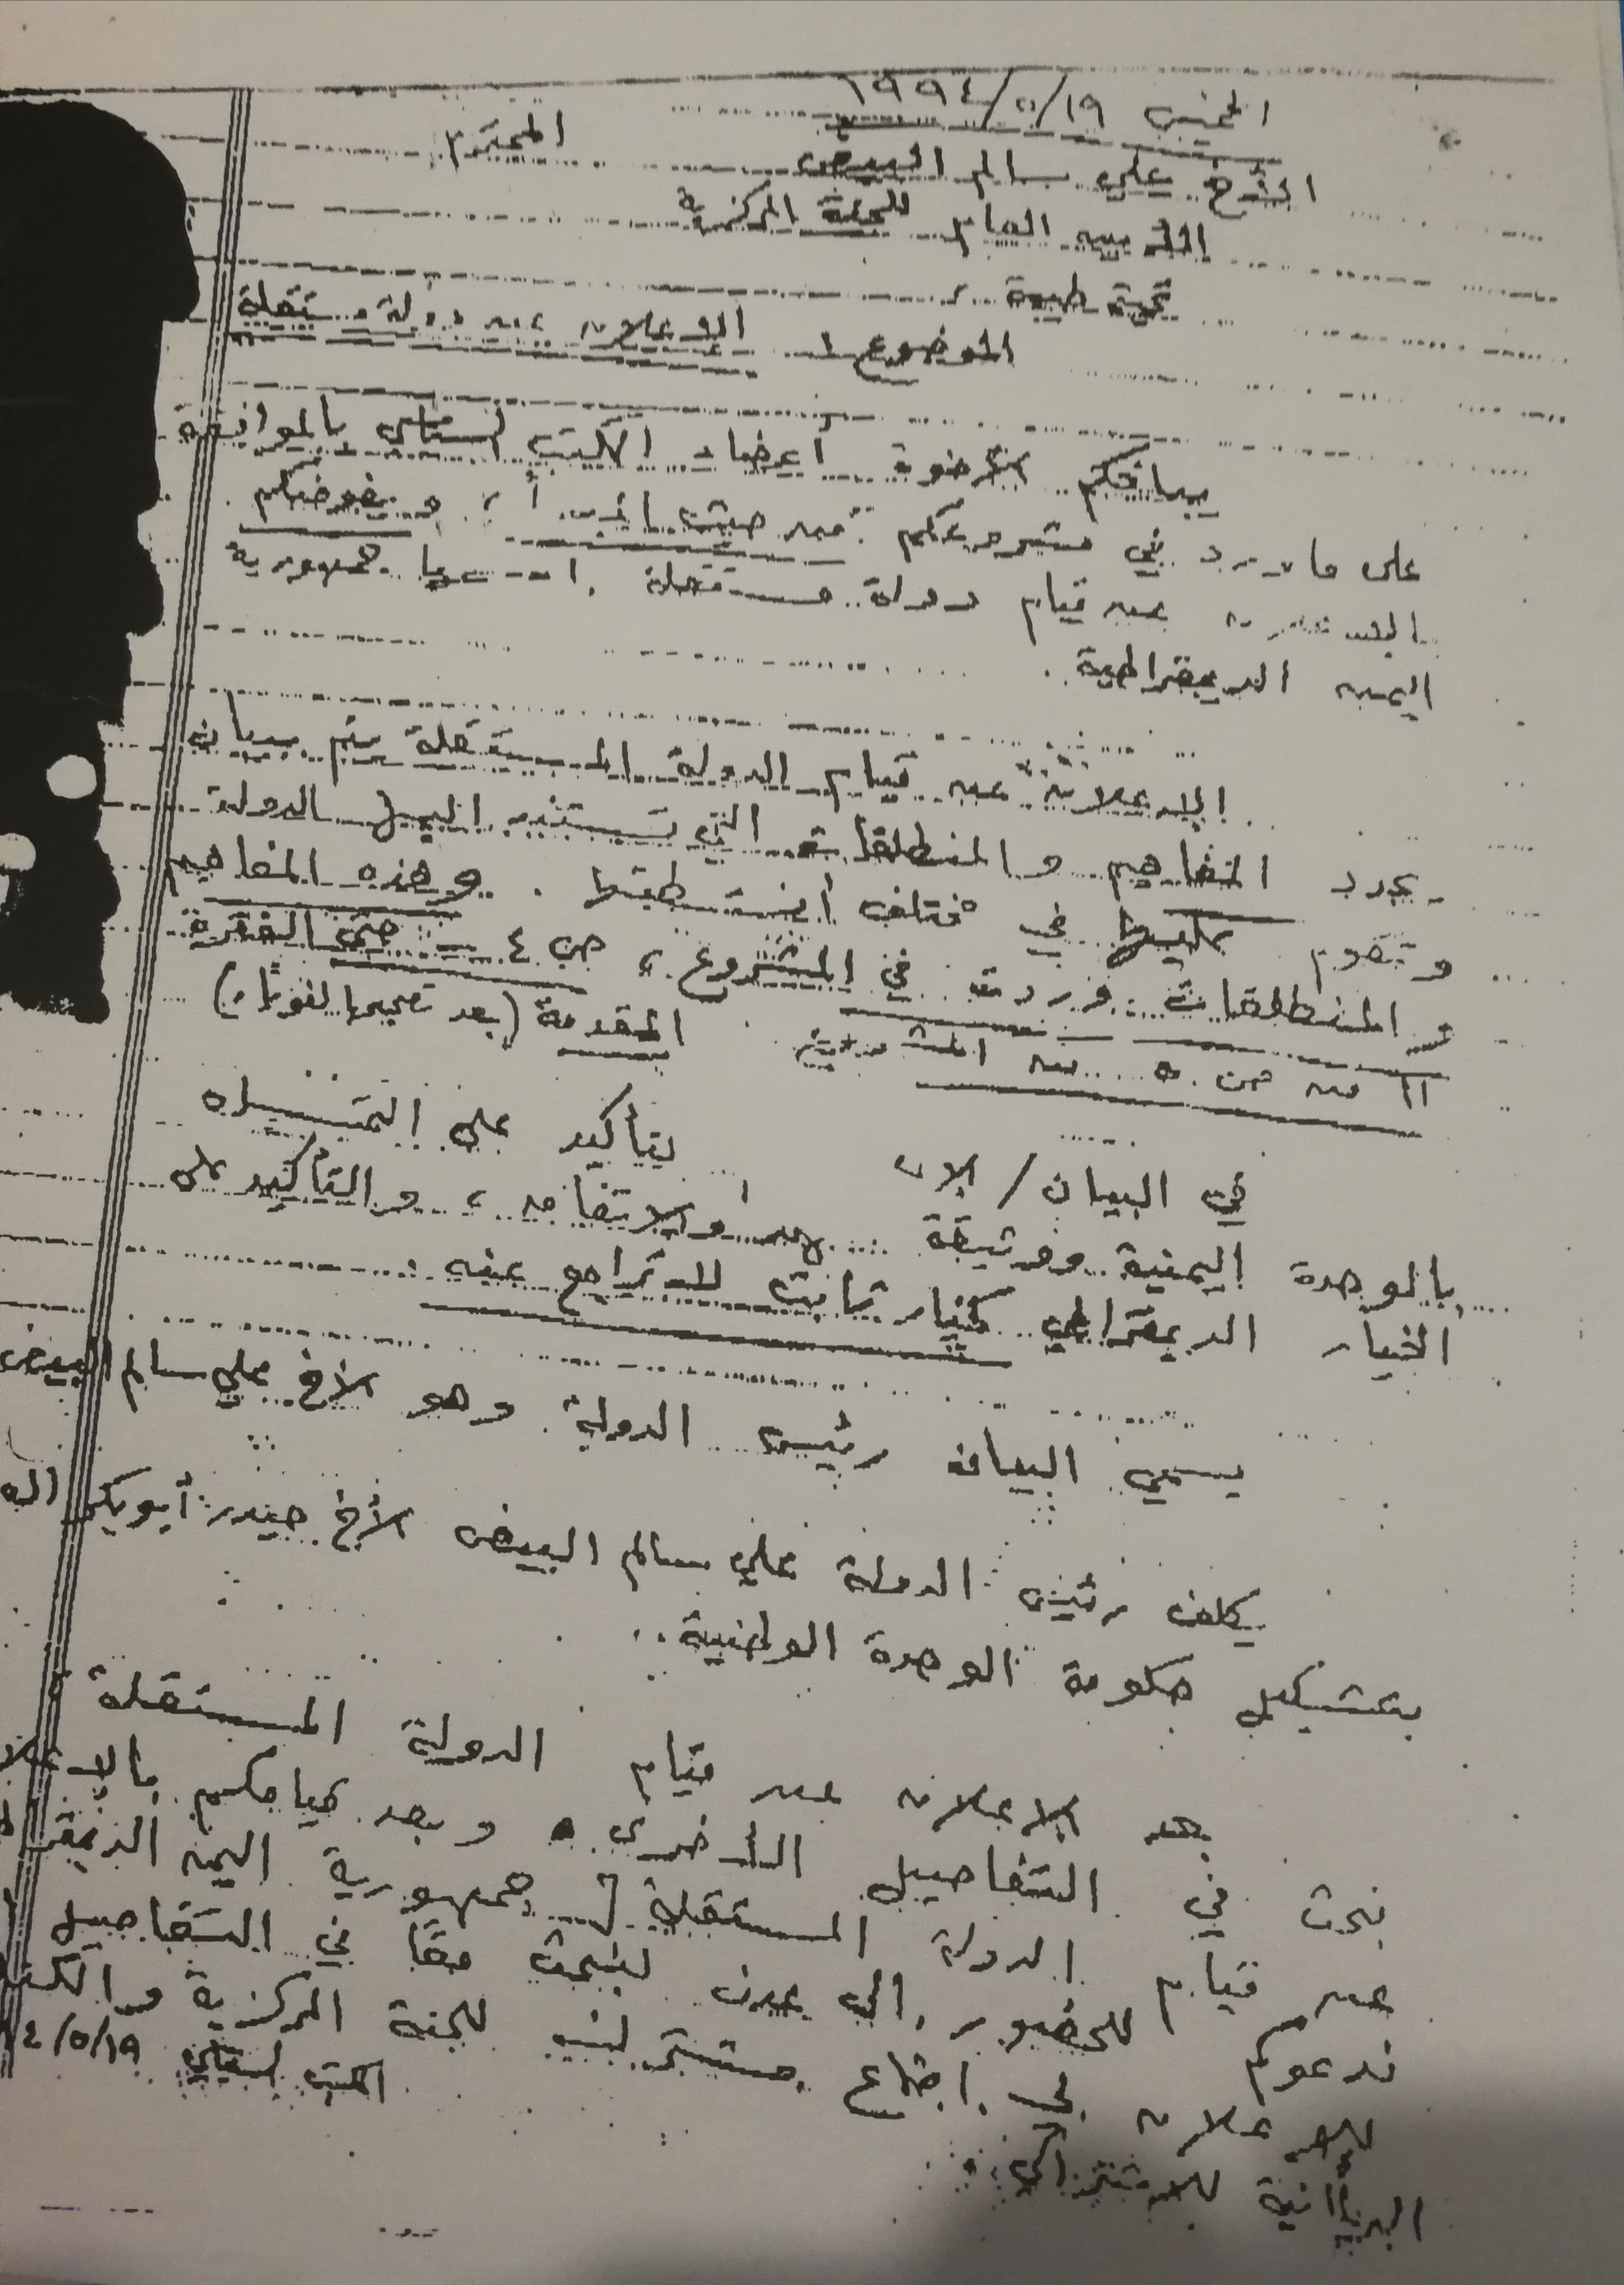 الخميس ١٩/٥/١٩٩٤
الأخ علي سالم البيض المحترم
الأمين العام للجنة المركزية
تحية طيبة ،
الموضوع / الإعلان عن دولة مستقلة
يبلغكم الأخوة أعضاء المكتب السياسي بالموافقة
على ما ورد في مشروعكم من حيث المبدأ ، و يفوضكم
الإعلان عن قيام دولة مستقلة اسمها جمهورية
اليمن الديمقراطية .
الإعلان عن قيام الدولة المستقلة يتم ببيان
يحدد المفاهيم و المنطلقات التي تستند اليها الدولة
و تقوم عليها في مختلف أنشطتها . وهذه المفاهيم
و المنطلقات وردت في المشروع ، ص ٤ - حتى الفقرة
١١ من ص ٥ من المشروع . المقدمة (بعد تصحيحها لغوياً)
في البيان / يتأكيد على التمسك
بالوحدة اليمنية ووثيقة العهد والاتفاق ، و التأكيد على
الخيار الديمقراطي كخيار ثابت لا تراجع عنه .
يسمي البيان رئيس الدولة وهو الأخ علي سالم البيض
يكلف رئيس الدولة علي سالم البيض الأخ حيدر أبوبكر
بتشكيل حكومة الوحدة الوطنية ..
بعد الإعلان عن قيام الدولة المستقلة
نبحث في التفاصيل الأخرى و بعد قيامكم
عن قيام الدولة المستقلة [ جمهورية اليمن
ندعوكم للحضور الى عدن لنبحث معاً في التفاصيل
للإعلان في اجتماع مشترك للجنة المركزية
للاشتراكي .. المكتب السياسي ١٩/٥/